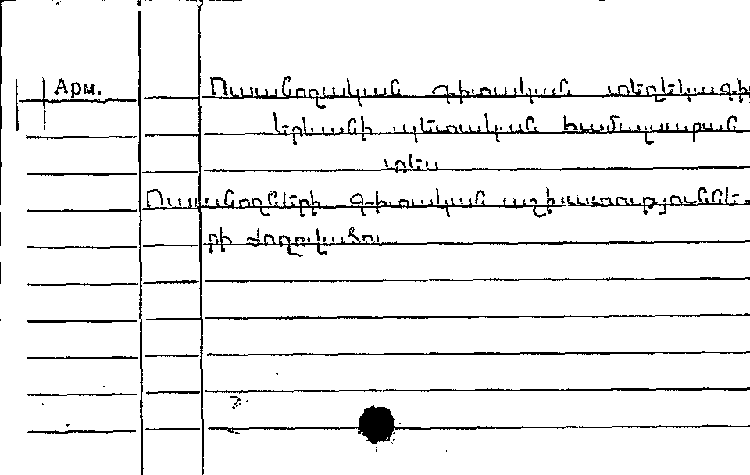 Арм.
Ուսանողական գիտական տեղեկագի
Երևանի պետական համալսարան
տես
Ուսանողների գիտական աշխատություննե-
րի ժողովածու